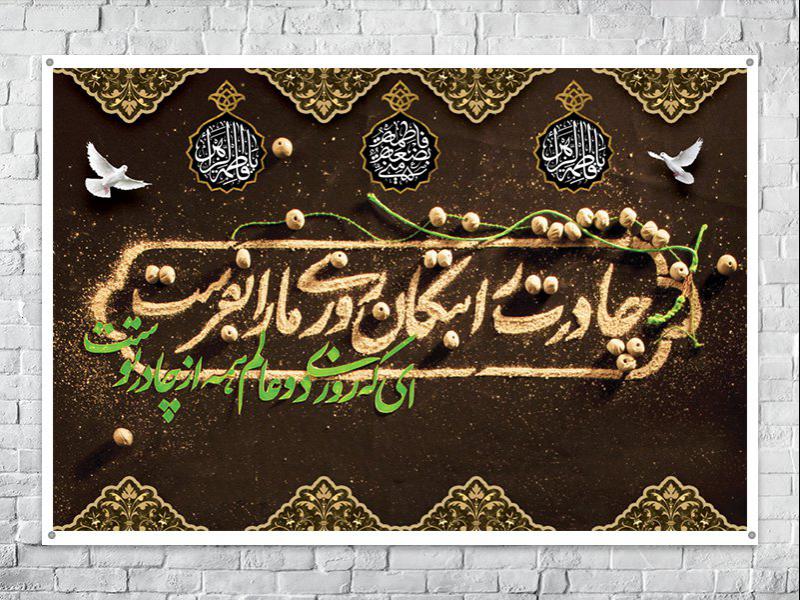 یا فاطمة الزهرا
فاطمة بضعة منی
یا فاطمة الزهرا
چادرت را بتکان روزی ما را بفرست
ای که روزی دو عالم همه از چادر توست